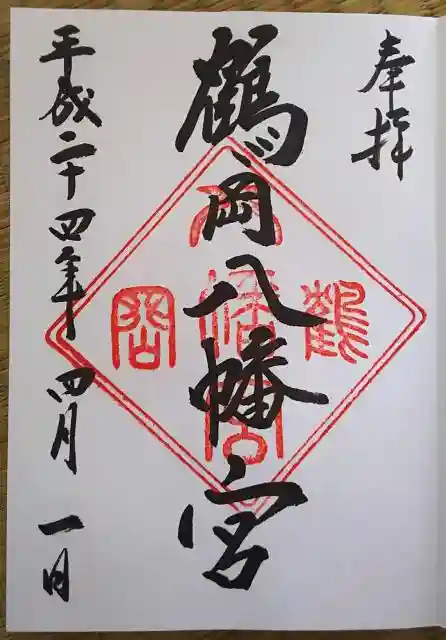 奉拝
鶴岡八幡宮
平成二十四年四月一日
鶴
岡
八
幡
宮